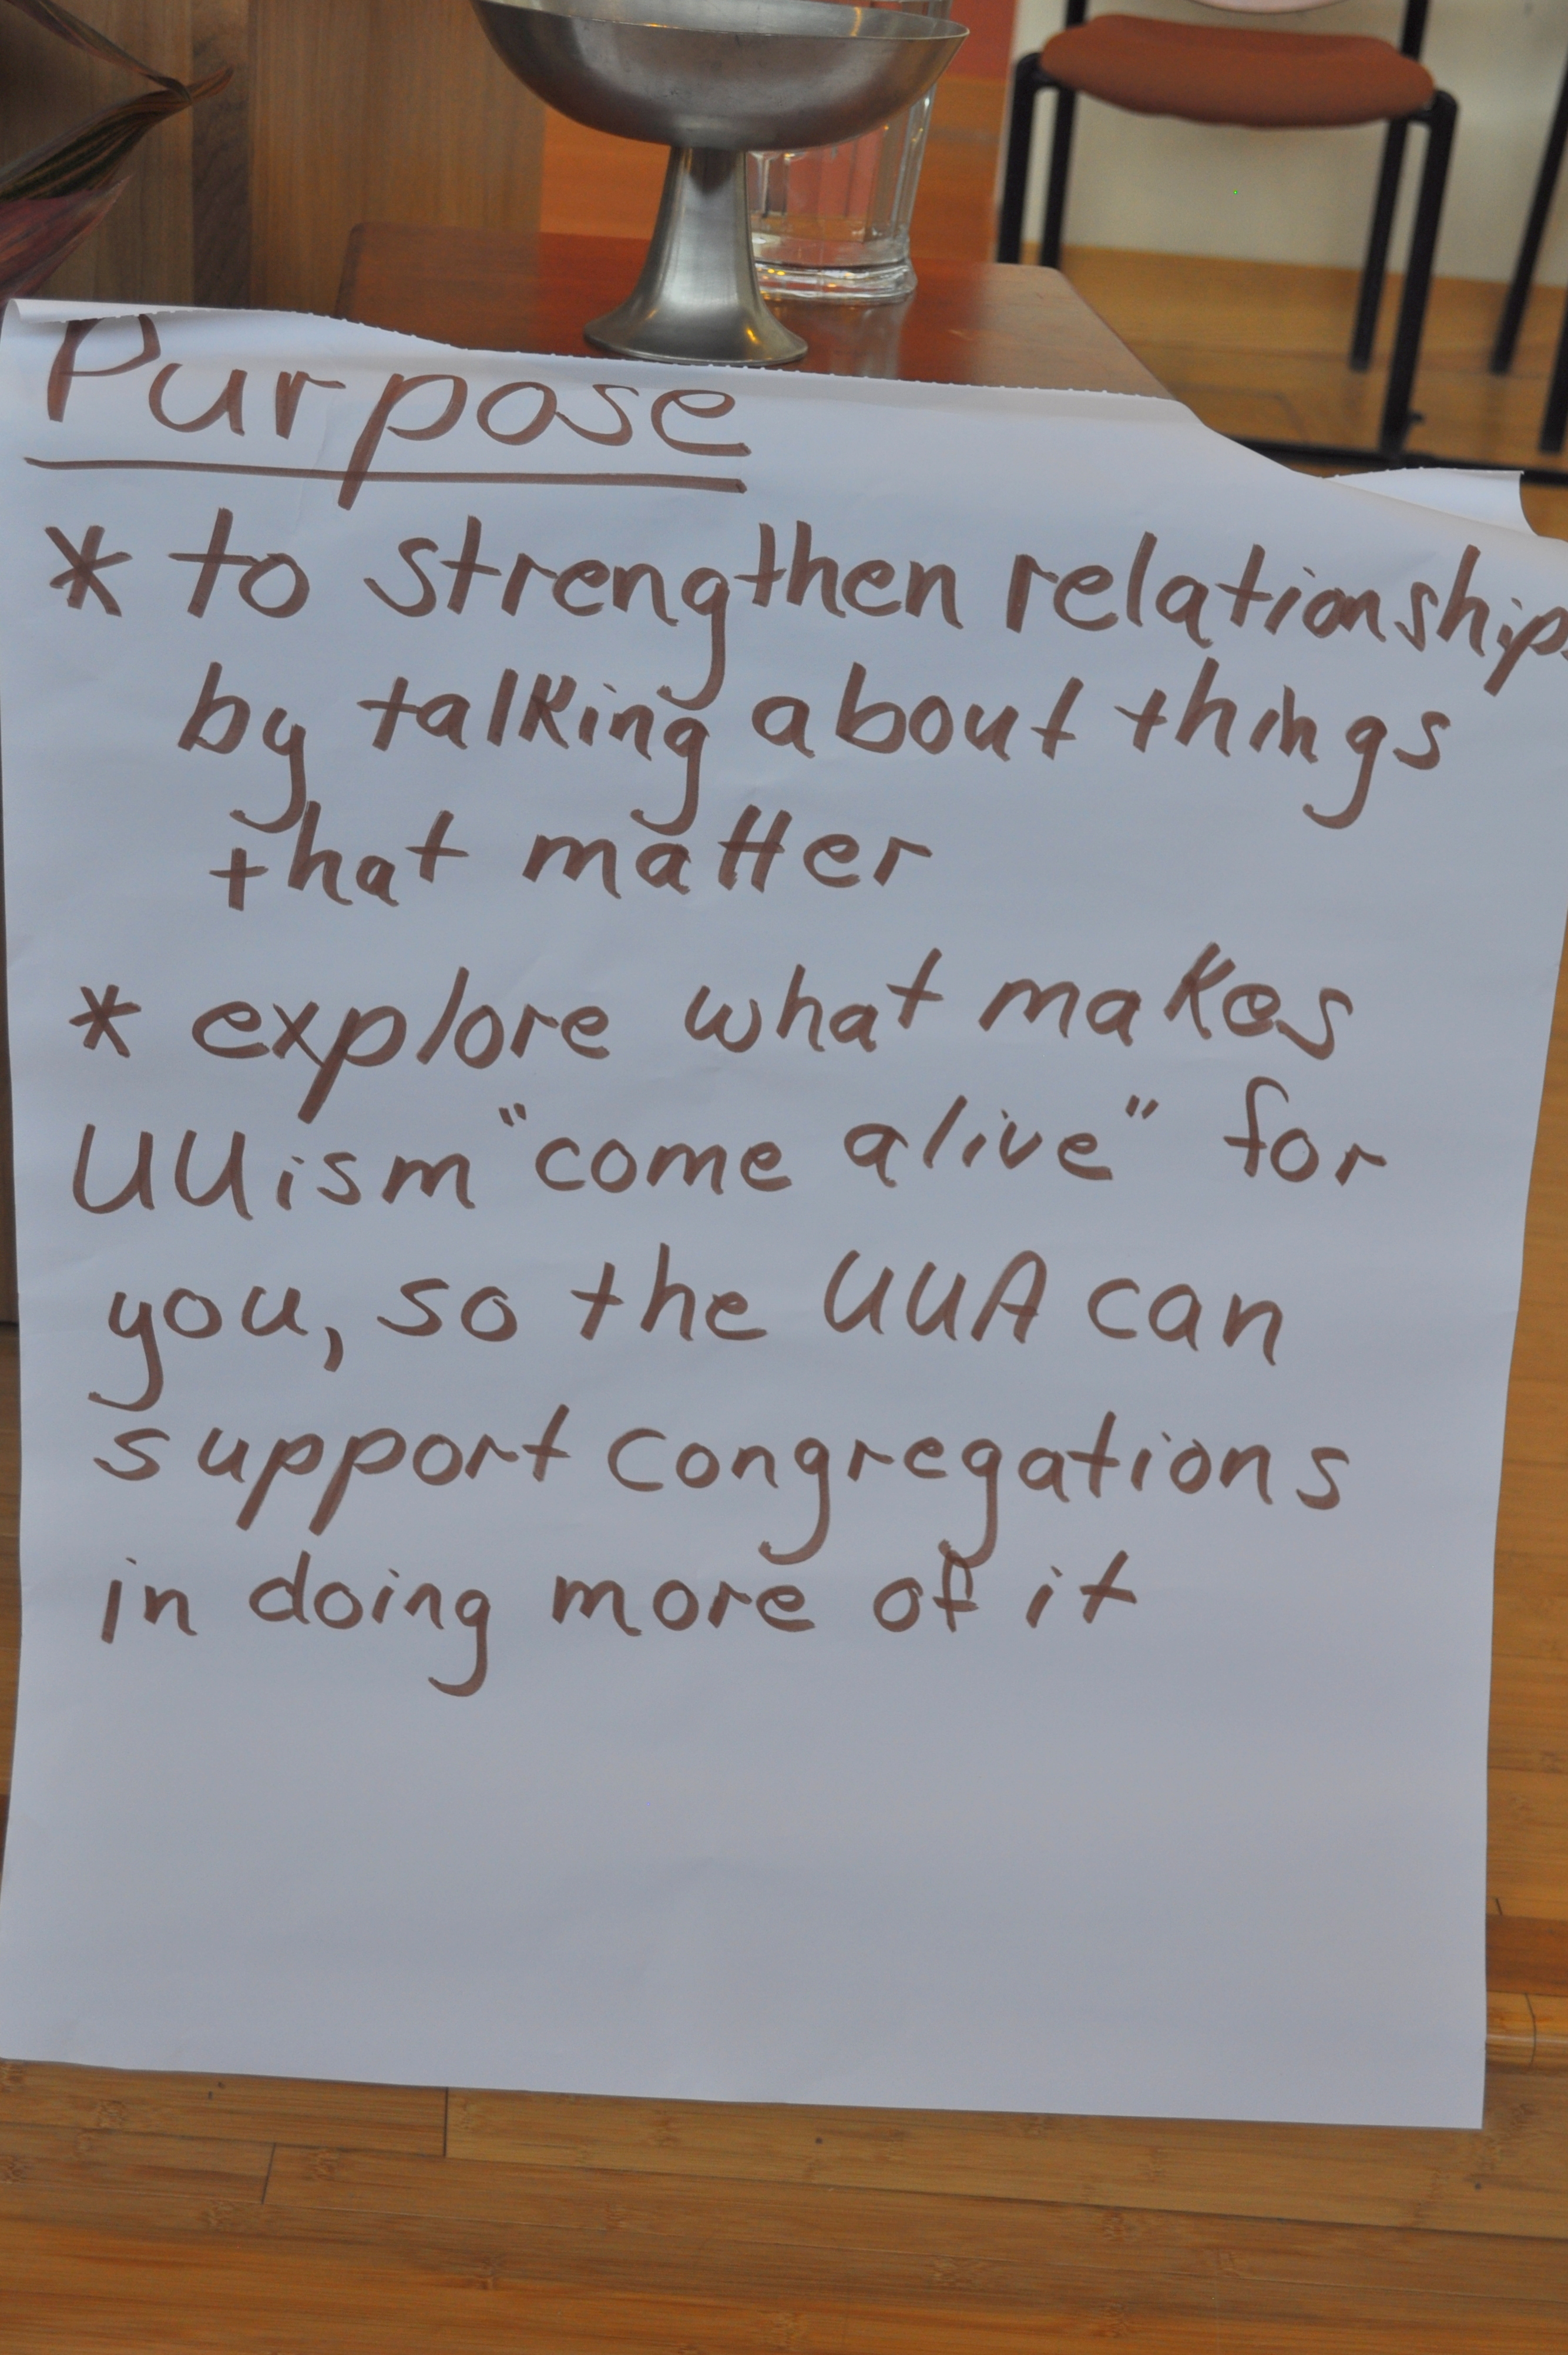 Purpose
* to strengthen relationships
by talking about things
that matter
* explore what makes
UUism "come alive" for
you, so the UUA can
support congregations
in doing more of it